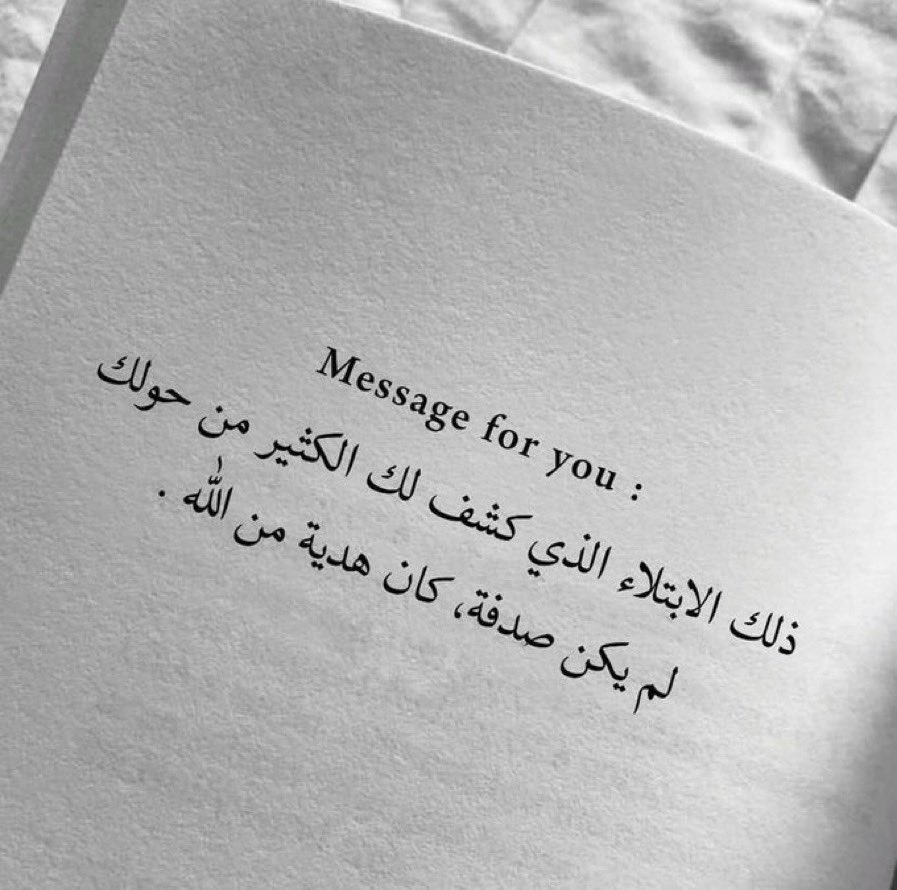 Message for you :
ذلك الابتلاء الذي كشف لك الكثير من حولك
لم يكن صدفة، كان هدية من الله .